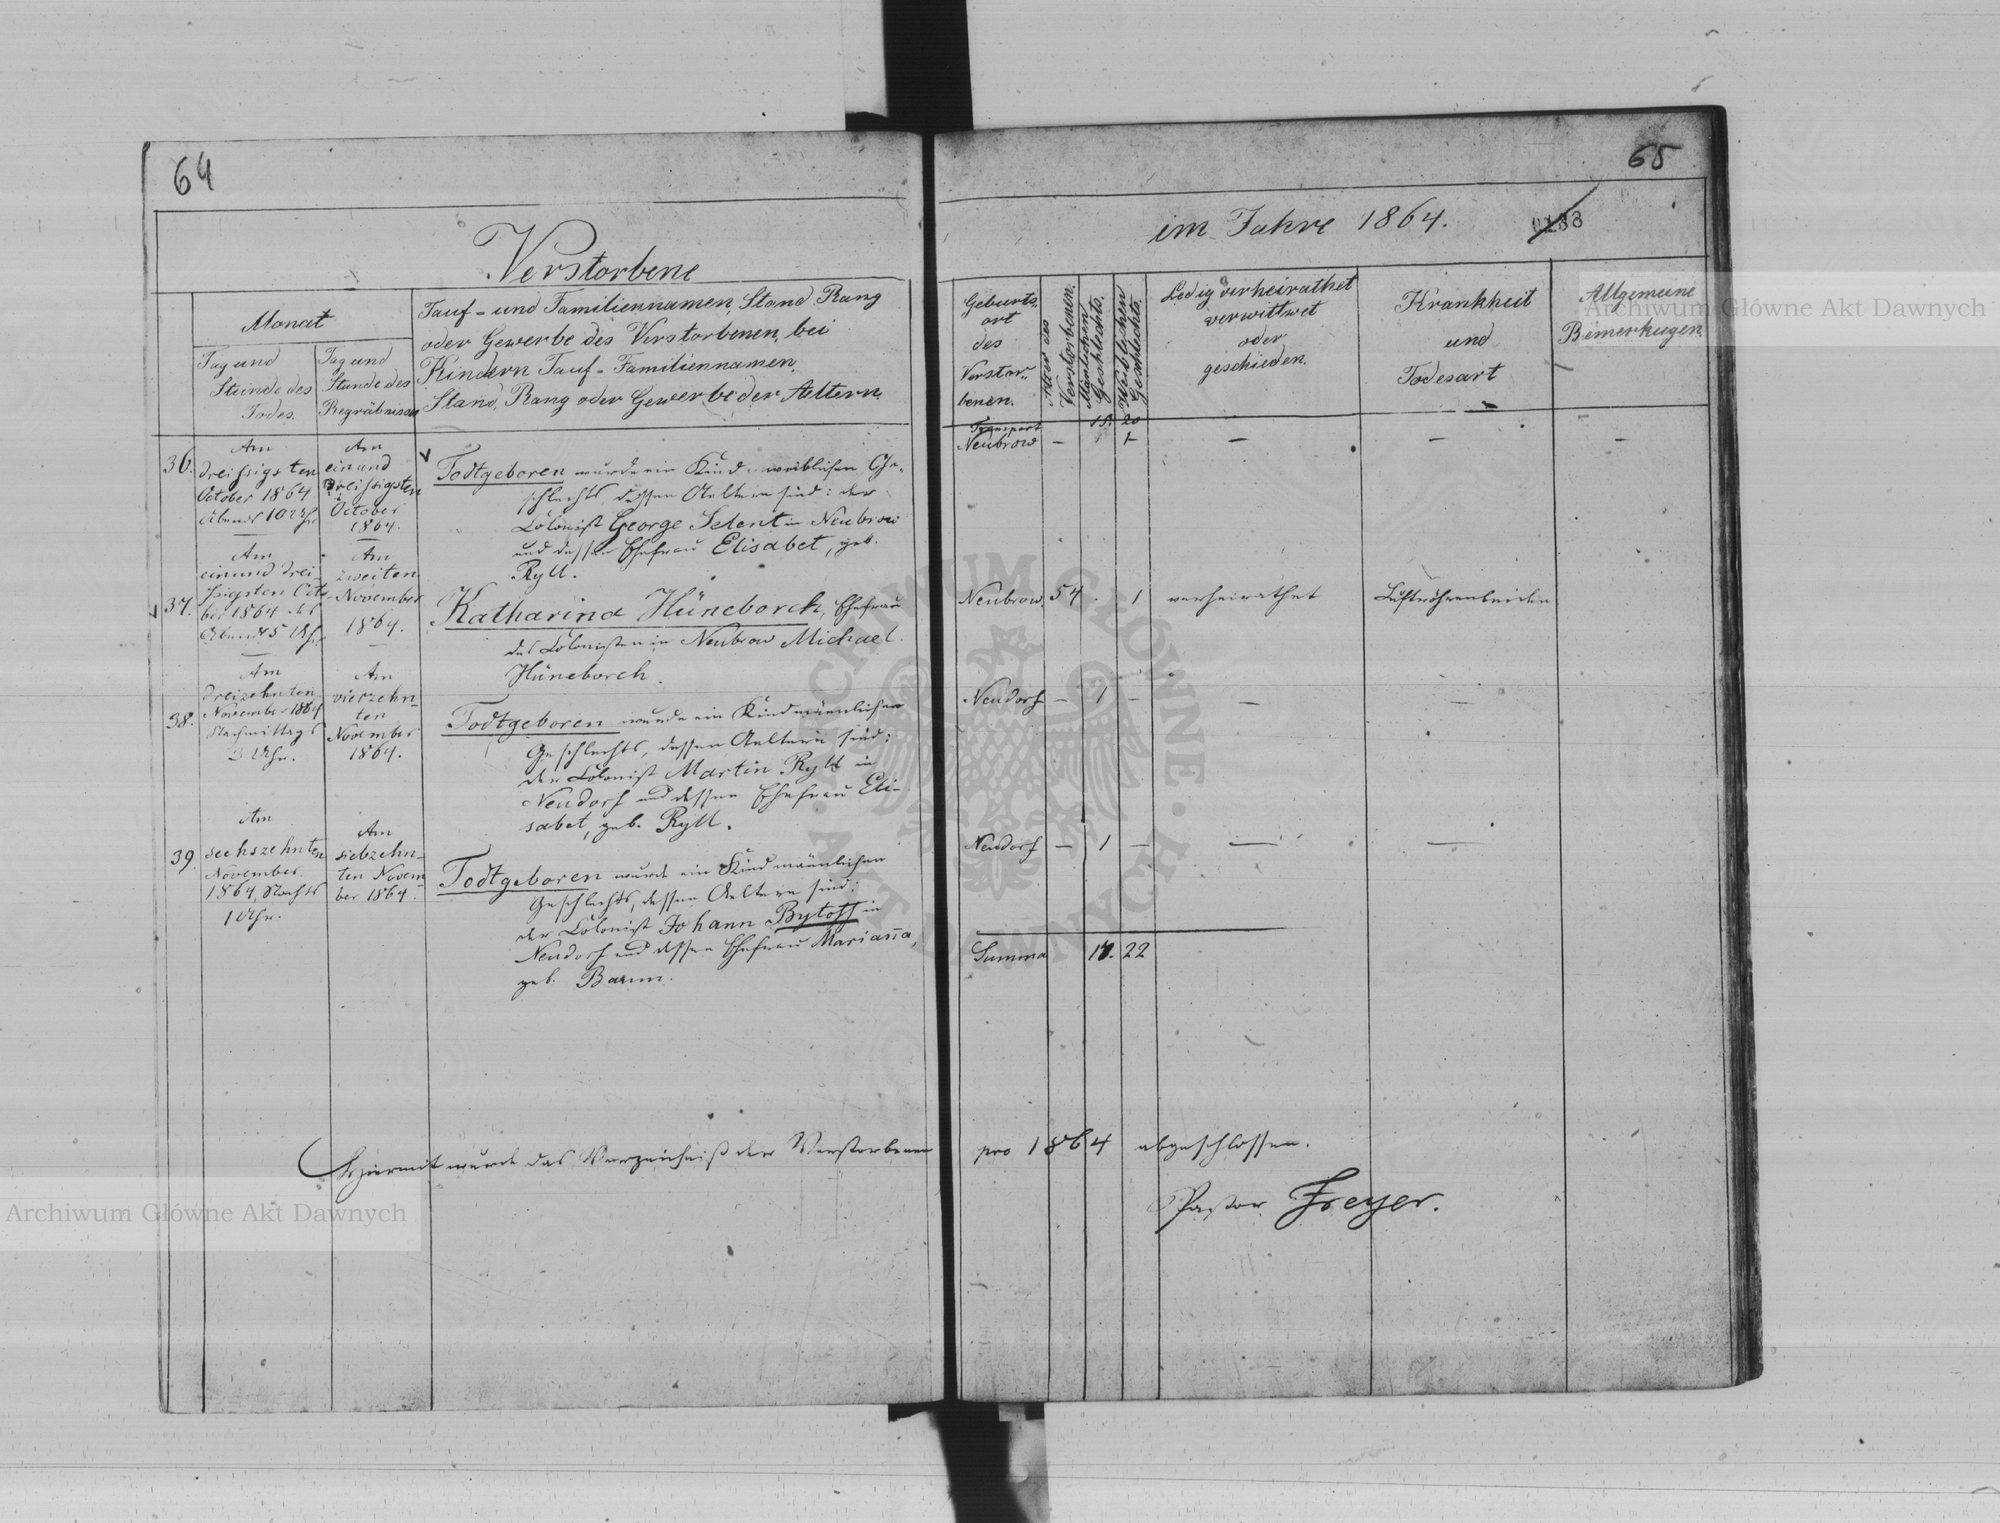 64
Verstorbene
Monat
Tag und
Stunde des
Todes.
Tag und
Stunde des
Begräbnisses
Tauf- und Familiennamen, Stand Rang
oder Gewerbe des Verstorbenen, bei
Kindern Tauf-Familiennamen,
Stand, Rang oder Gewerbe der Aeltern.
36.
Am
dreissigsten
October 1864
Abends 10 Uhr
Am
einund
dreissigsten
October
1864.
Todtgeboren wurde ein Kind weiblichen Ge-
schlechts, dessen Aeltern sind: der
Colonist George Selent in Neubrow
und dessen Ehefrau Elisabet, geb.
Ryll.
37.
Am
einund drei-
ssigsten Octo-
ber 1864 des
Abends 5 Uhr
Am
zweiten
November
1864.
Katharina Hüneborch, Ehefrau
des Colonisten in Neubrow Michael
Hüneborch.
38.
Am
dreizehnten
November 1864
Nachmittags
3 Uhr.
Am
vierzehn-
ten
November
1864.
Todtgeboren wurde ein Kind männlichen
Geschlechts, dessen Aeltern sind:
der Colonist Martin Ryll in
Neudorf und dessen Ehefrau Eli-
sabet, geb. Ryll.
39.
Am
sechszehnten
November
1864, Nachts
1 Uhr.
Am
siebzehn-
ten Novem-
ber 1864.
Todtgeboren wurde ein Kind männlichen
Geschlechts, dessen Aeltern sind:
der Colonist Johann Bytoff in
Neudorf und dessen Ehefrau Marianna,
geb. Baum.
Hiermit wurde das Verzeichniß der Verstorbenen
65
im Jahre 1864.
Geburts-
ort
des
Verstor-
benen.
Alter des
Verstorbenen.
Mänlichen
Geschlechts.
Weiblichen
Geschlechts.
Ledig verheirathet
verwittwet
oder
geschieden.
Krankheit
und
Todesart
Allgemeine
Bemerkugen.
Transport 15. 20
Neubrow — 1 — — —
Neubrow. 54 . 1 verheirathet Luftröhrenleiden
Neudorf — 1 — — —
Neudorf — 1 — — —
Summa 17. 22
pro 1864 abgeschlossen.
Pastor Freyer.
Archiwum Główne Akt Dawnych
Archiwum Główne Akt Dawnych
ARCHIWUM GŁÓWNE AKT DAWNYCH